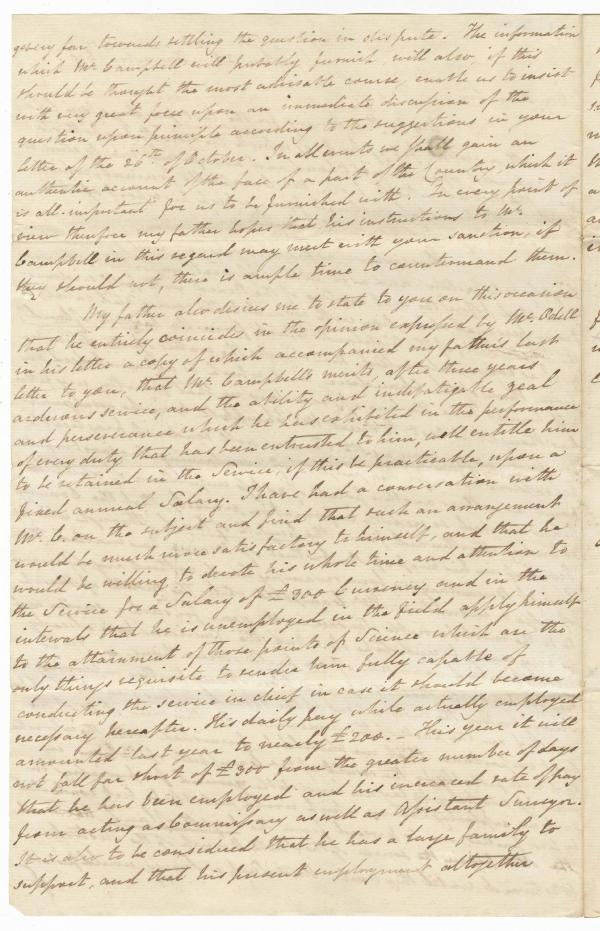 go very far towards settling the question in dispute. The information
which Mr. Campbell will probably furnish will also, if this
should be thought the most advisable course, enable us to insist
with very great force upon an immediate discussion of the
question upon principle according to the suggestions in your
letter of the 26th of October. In all events we shall gain an
authentic account of the face of a part of the Country, which it
is all-important for us to be furnished with. In every point of
view therefore my father hopes that his instructions to Mr.
Campbell in this regard may meet with your sanction, if
they should not, there is ample time to countermand them.
My father also desires me to state to you on this occasion
that he entirely coincides in the opinion expressed by Mr. Odell
in his letter a copy of which accompanied my father's last
letter to you, that Mr. Campbell's merits, after three years
arduous service, and the ability and indefatigable zeal
and perseverance which he has exhibited in the performance
of every duty that has been entrusted to him, well entitle him
to be retained in the Service, if this be practicable, upon a
fixed annual Salary. I have had a conversation with
Mr. C. on the subject and find that such an arrangement
would be much more satisfactory to himself, and that he
would be willing to devote his whole time and attention to
the Service for a Salary of £300 Currency and in the
intervals that he is unemployed in the field apply himself
to the attainment of those points of Science which are the
only things requisite to render him fully capable of
conducting the service in chief in case it should become
necessary hereafter. His daily pay while actually employed
amounted last year to nearly £200. – This year it will
not fall far short of £300 from the greater number of days
that he has been employed and his increased rate of pay
from acting as Commissary as well as Assistant Surveyor.
It is also to be considered that he has a large family to
support, and that his present employment altogether